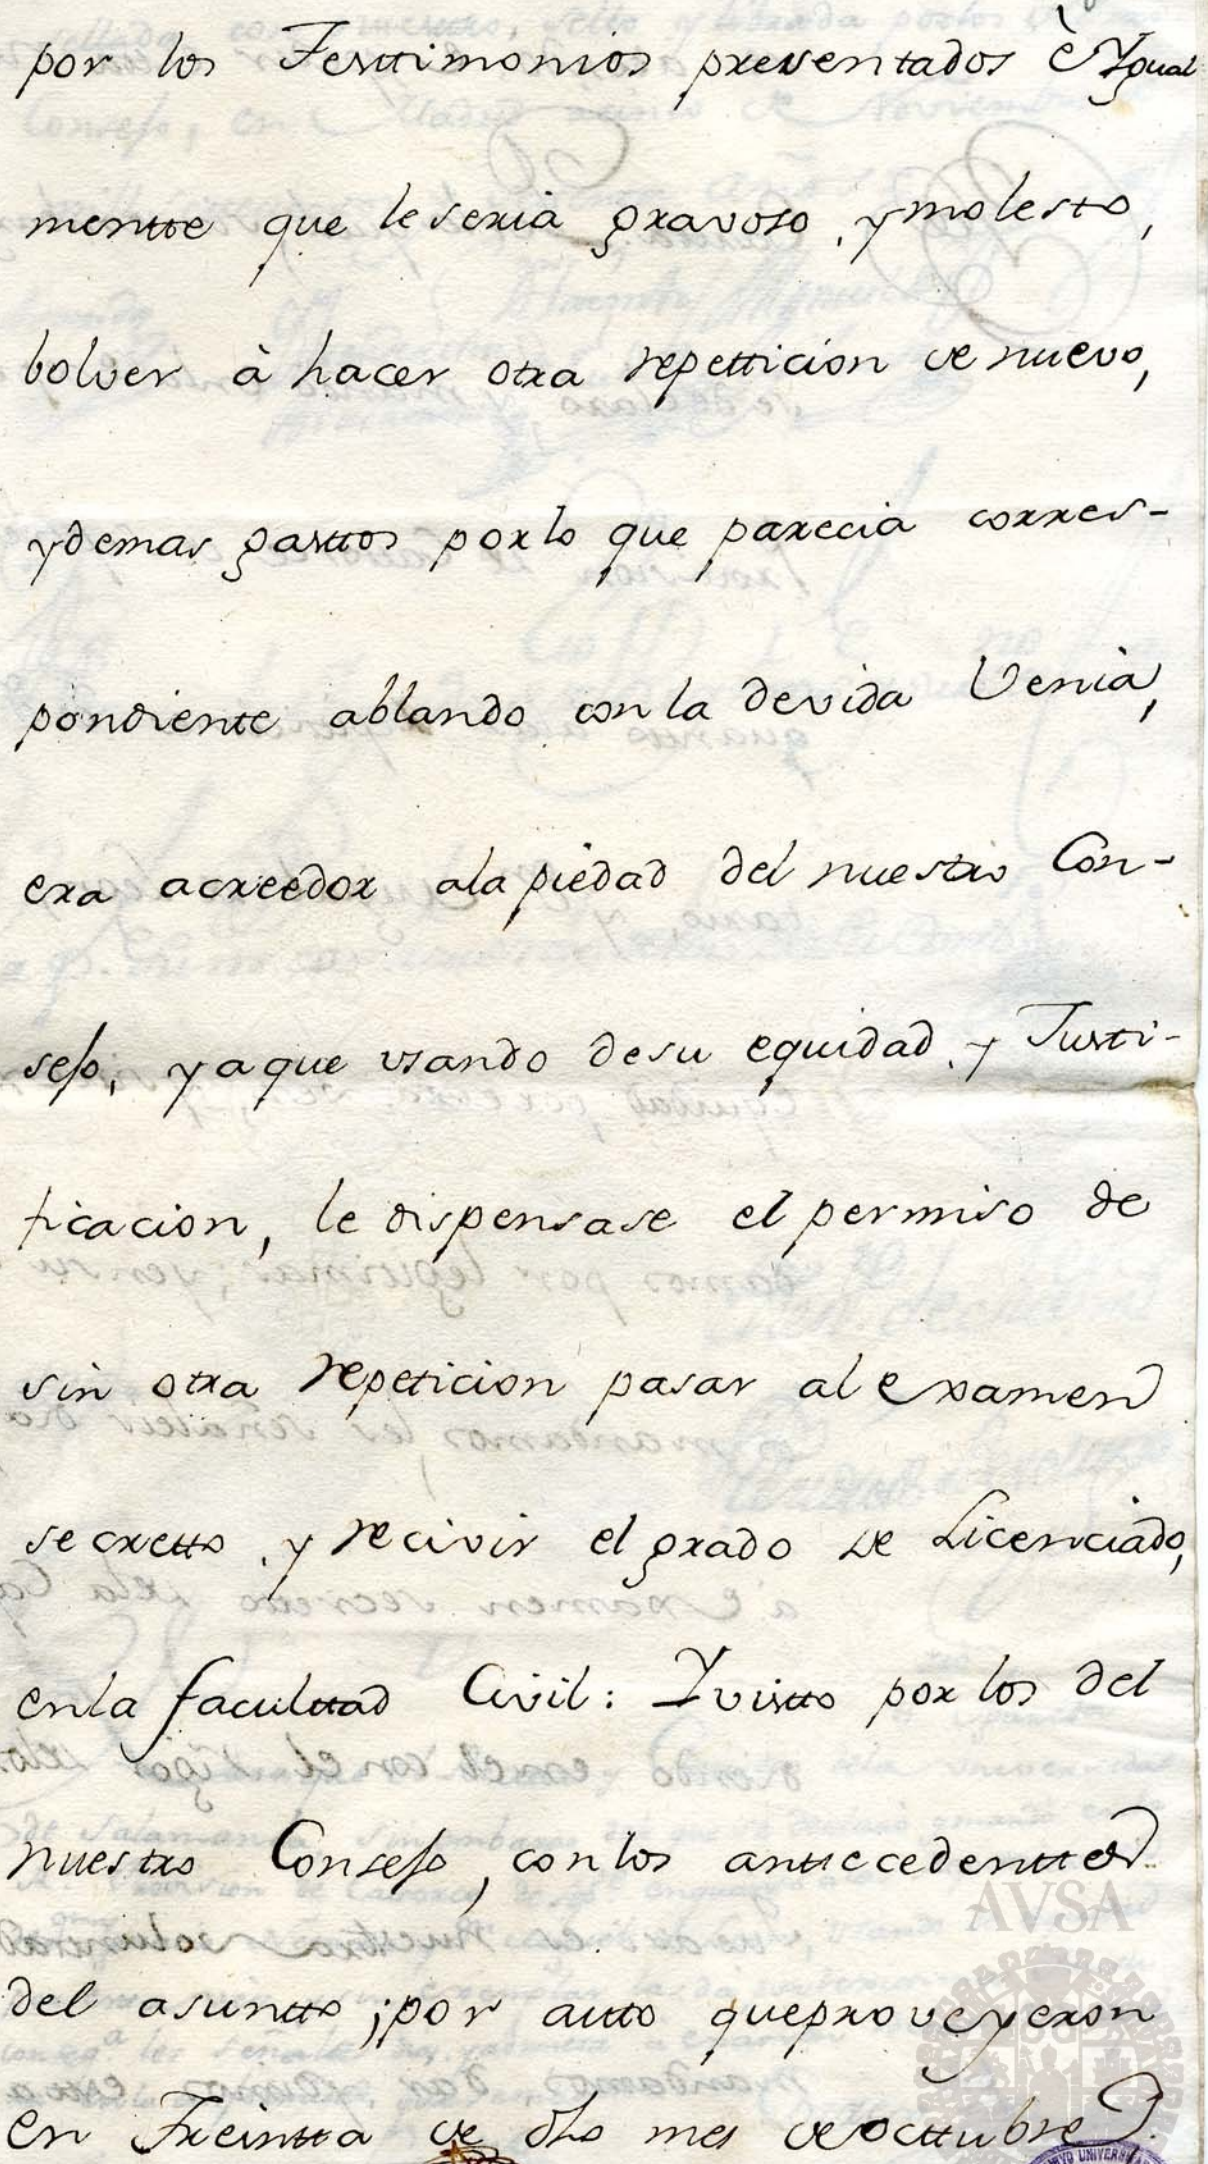 por los Testtimonios presentados è Ygual
mentte que le seria gravoso, y molesto,
bolver à hacer otra repetticion de nuevo,
y demas gasttos por lo que parecia corres-
pondiente ablando con la devida Venia,
era acreedor ala piedad del nuestro Con-
sejo, ya que usando de su equidad, y Justi-
ficacion, le dispensase el permiso de
sin otra repeticion pasar al examen
secretto, y recivir el grado de Licenciado,
enla facultad Civil: Y vistto por los del
nuestro Consejo, con los anttecedenttes
del asuntto; por autto que proveyeron
en Treintta de dho mes de octtubre.
AVSA